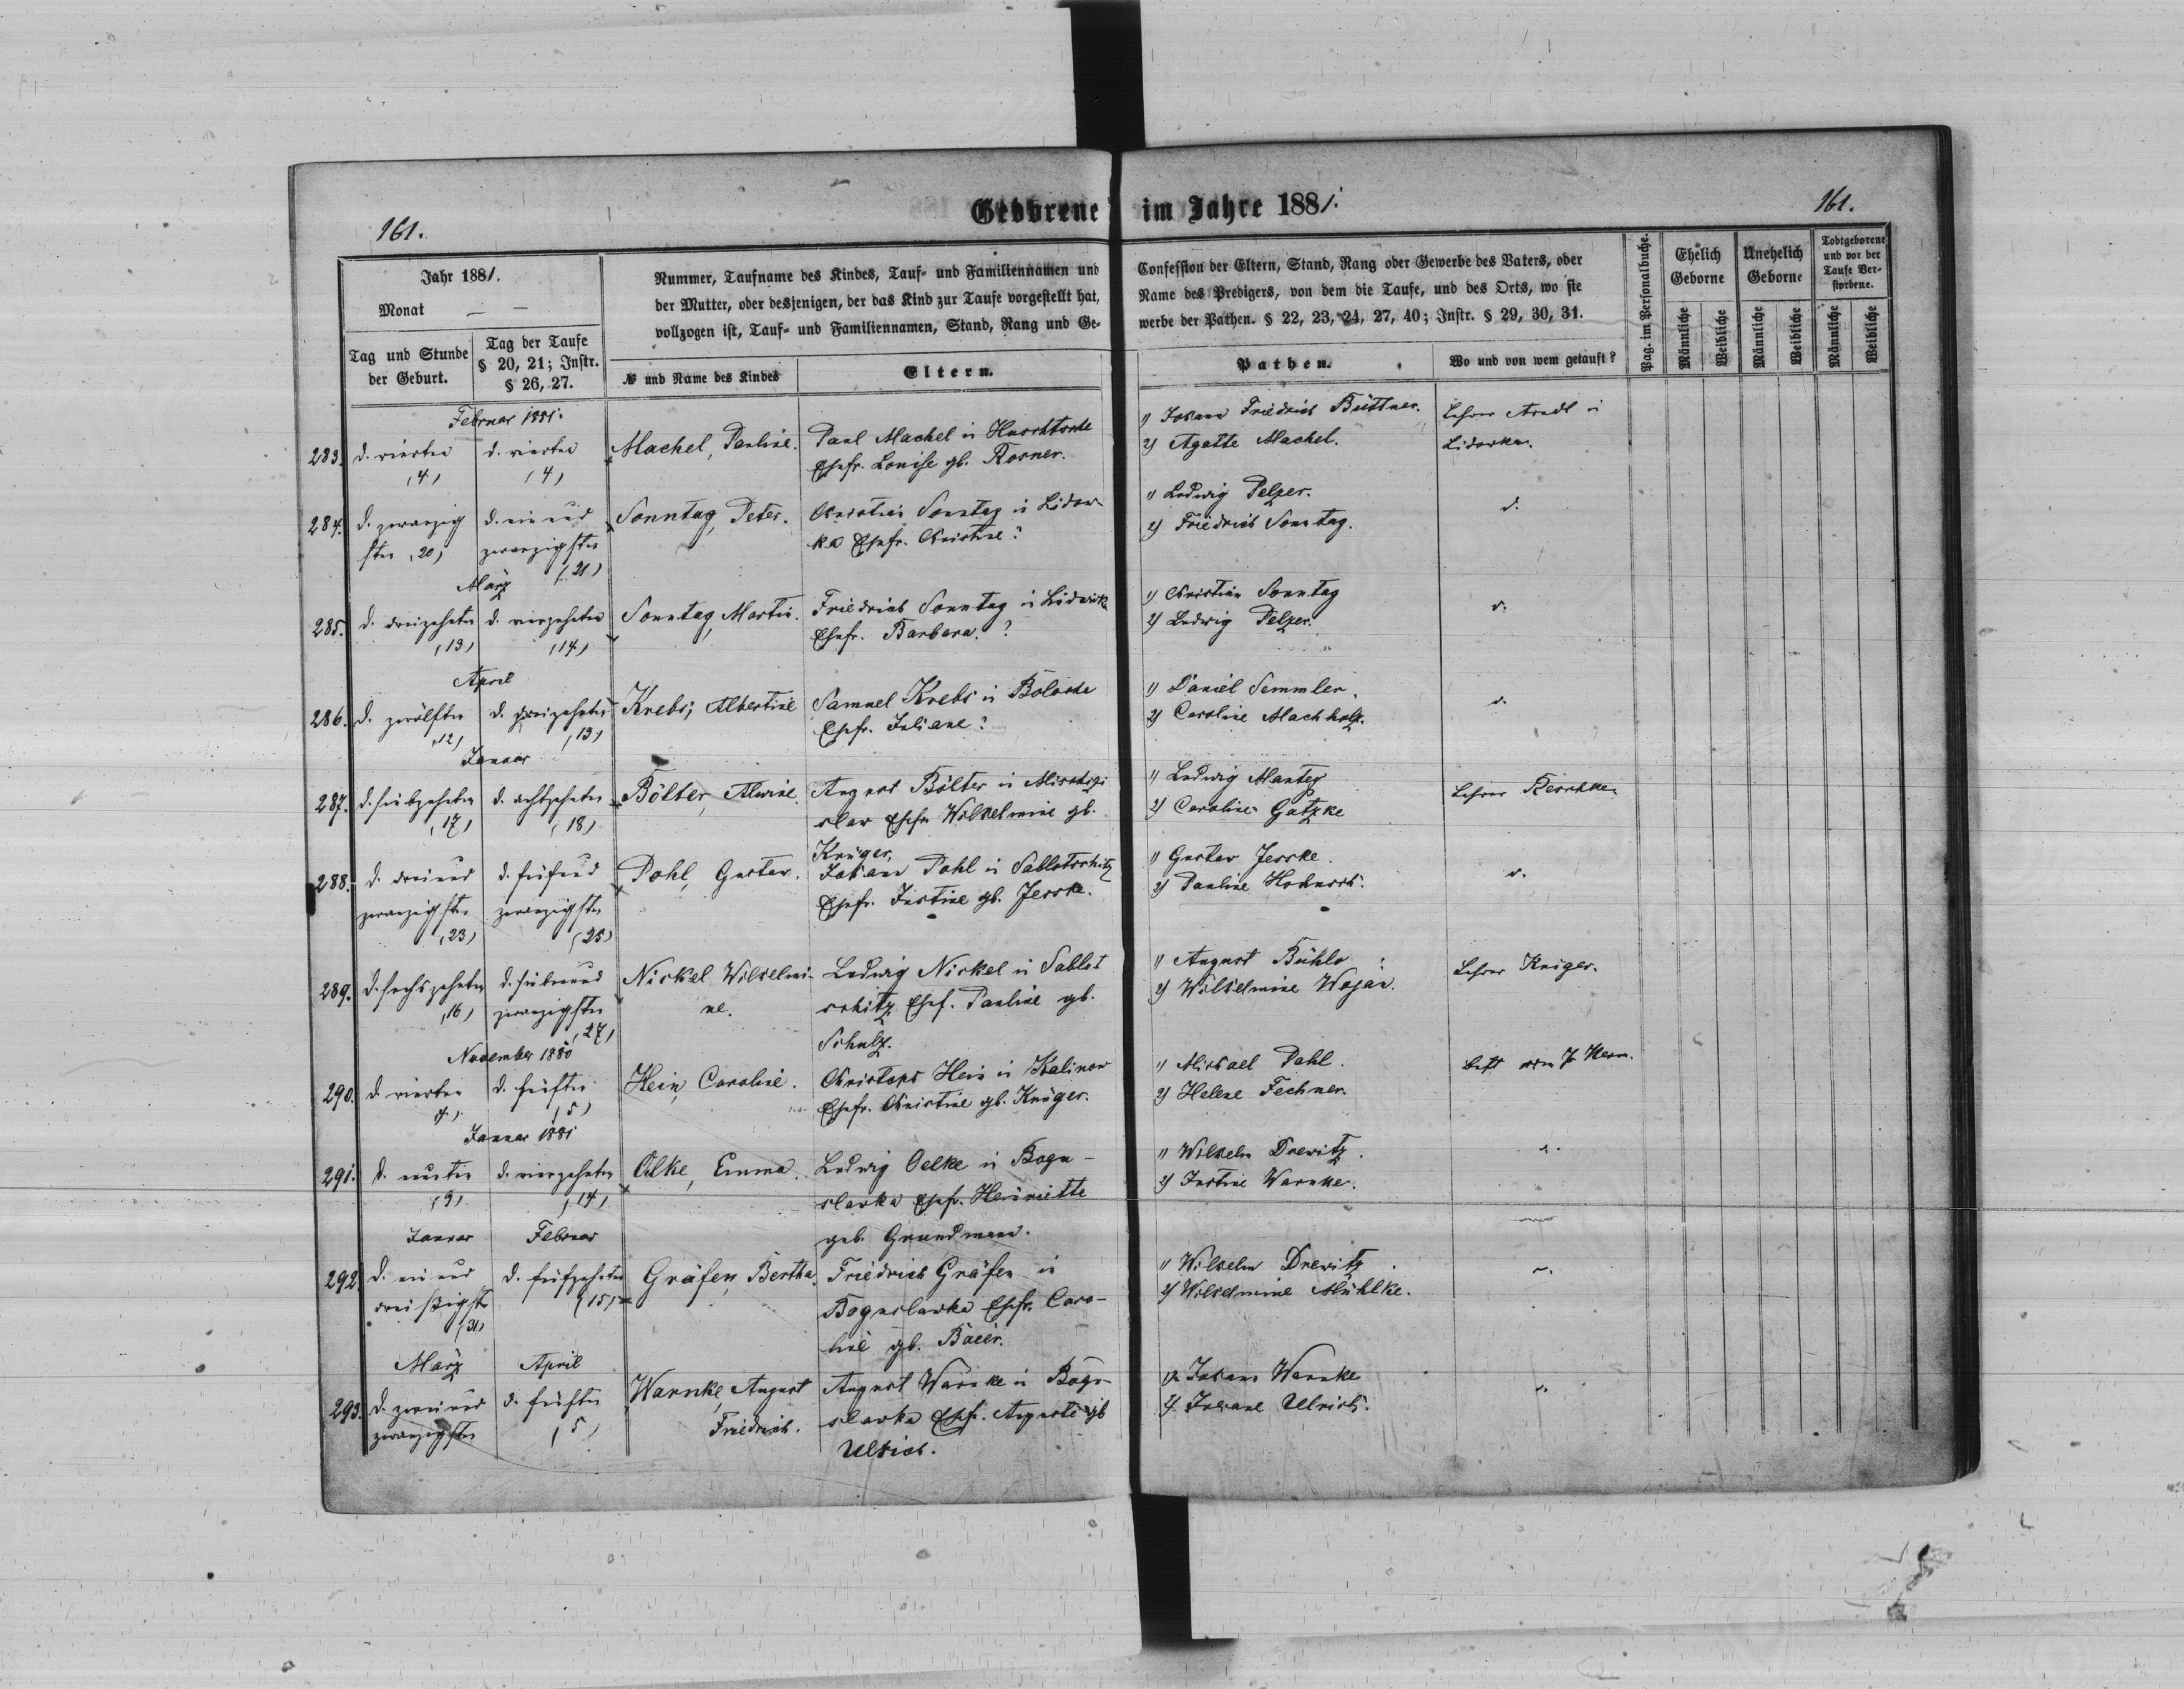 161.
Geborene im Jahre 1881.
161.
Jahr 1881.
Monat — —
Tag und Stunde der Geburt.
Tag der Taufe § 20, 21; Instr. § 26, 27.
Nummer, Taufname des Kindes, Tauf- und Familiennamen und
der Mutter, oder desjenigen, der das Kind zur Taufe vorgestellt hat,
vollzogen ist, Tauf- und Familiennamen, Stand, Rang und Ge-
№ und Name des Kindes
Eltern.
Confession der Eltern, Stand, Rang oder Gewerbe des Vaters, oder
Name des Predigers, von dem die Taufe, und des Orts, wo sie
werbe der Pathen. § 22, 23, 24, 27, 40; Instr. § 29, 30, 31.
Pathen.
Wo und von wem getauft?
Pag. im Personalbuche.
Ehelich Geborne
Unehelich Geborne
Todtgeborene und vor der Taufe Ver- storbene.
Männliche
Weibliche
Männliche
Weibliche
Männliche
Weibliche
Februar 1881.
283. d. vierten (4)
d. vierten (4)
Machel, Pauline.
Paul Machel in
Ehefr. Louise gb. Rosner.
1) Johann Friedrich Büttner.
2) Agatte Machel.
Lehrer Arndt in
284. d. zwanzig
sten (20)
d. ein und
zwanzigsten
(21)
Sonntag, Peter.
Christian Sonntag in Lidaw
ka Ehefr. Christine?
1) Ludwig Pelzer.
2) Friedrich Sonntag.
d.
März
285. d. dreizehnten (13)
d. vierzehnten (14)
Sonntag, Martin.
Friedrich Sonntag in
Ehefr. Barbara.?
1) Christian Sonntag
2) Ludwig Pelzer.
d.
April
286. d. zwölften (12)
d. dreizehnten (13)
Krebs, Albertine
Samuel Krebs in
Ehefr. Juliane?
1) Daniel Semmler.
2) Caroline Machholz.
d.
Januar
287. d. siebzehnten (17)
d. achtzehnten (18)
Bölter, Alwine.
August Bölter in
slaw Ehefr. Wilhelmine gb.
Krüger.
1) Ludwig Manteg
2) Caroline Gatzke
Lehrer
288. d. drei und
zwanzigsten
(23)
d. fünf und
zwanzigsten
(25)
Pohl, Gustav.
Johann Pohl in Sablotschitz
Ehefr. Justine gb. Jeske.
1) Gustav Jeske.
2) Pauline
d.
289. d. sechszehnten (16)
d. sieben und
zwanzigsten
(27)
Nickel Wilhelmi-
ne.
Ludwig Nickel in Sablot
schitz Ehef. Pauline gb.
Schulz.
1) August
2) Wilhelmine
Lehrer Krüger.
November 1880
290. d. vierten
4)
d. fünften
(5)
Hein, Caroline.
Christoph Hein in Kalinow
Ehefr. Christine gb. Krüger.
1) Michael Pahl.
2) Helene Fechner.
Januar 1881
291. d. neunten
(9)
d. vierzehnten
(14)
Oelke, Emma.
Ludwig Oelke in Bogu-
slawka Ehefr. Henriette
geb. Grundmann.
1) Wilhelm Drewitz.
2) Justine Warnke.
d.
Januar
Februar
292 d. ein und
dreißigsten
(31)
d. fünfzehnten
(15)
Gräfen, Bertha.
Friedrich Gräfen in
Boguslawka Ehefr. Caro-
line gb. Baier.
1) Wilhelm Drewitz
2) Wilhelmine Mühlke.
d.
März
April
293. d. zwei und
zwanzigsten
d. fünften
(5)
Warnke, August
Friedrich.
August Warnke in Bogu-
slawka Ehefr. Auguste gb
Ulrich.
1) Johann Warnke
2) Juliane Ulrich.
d.